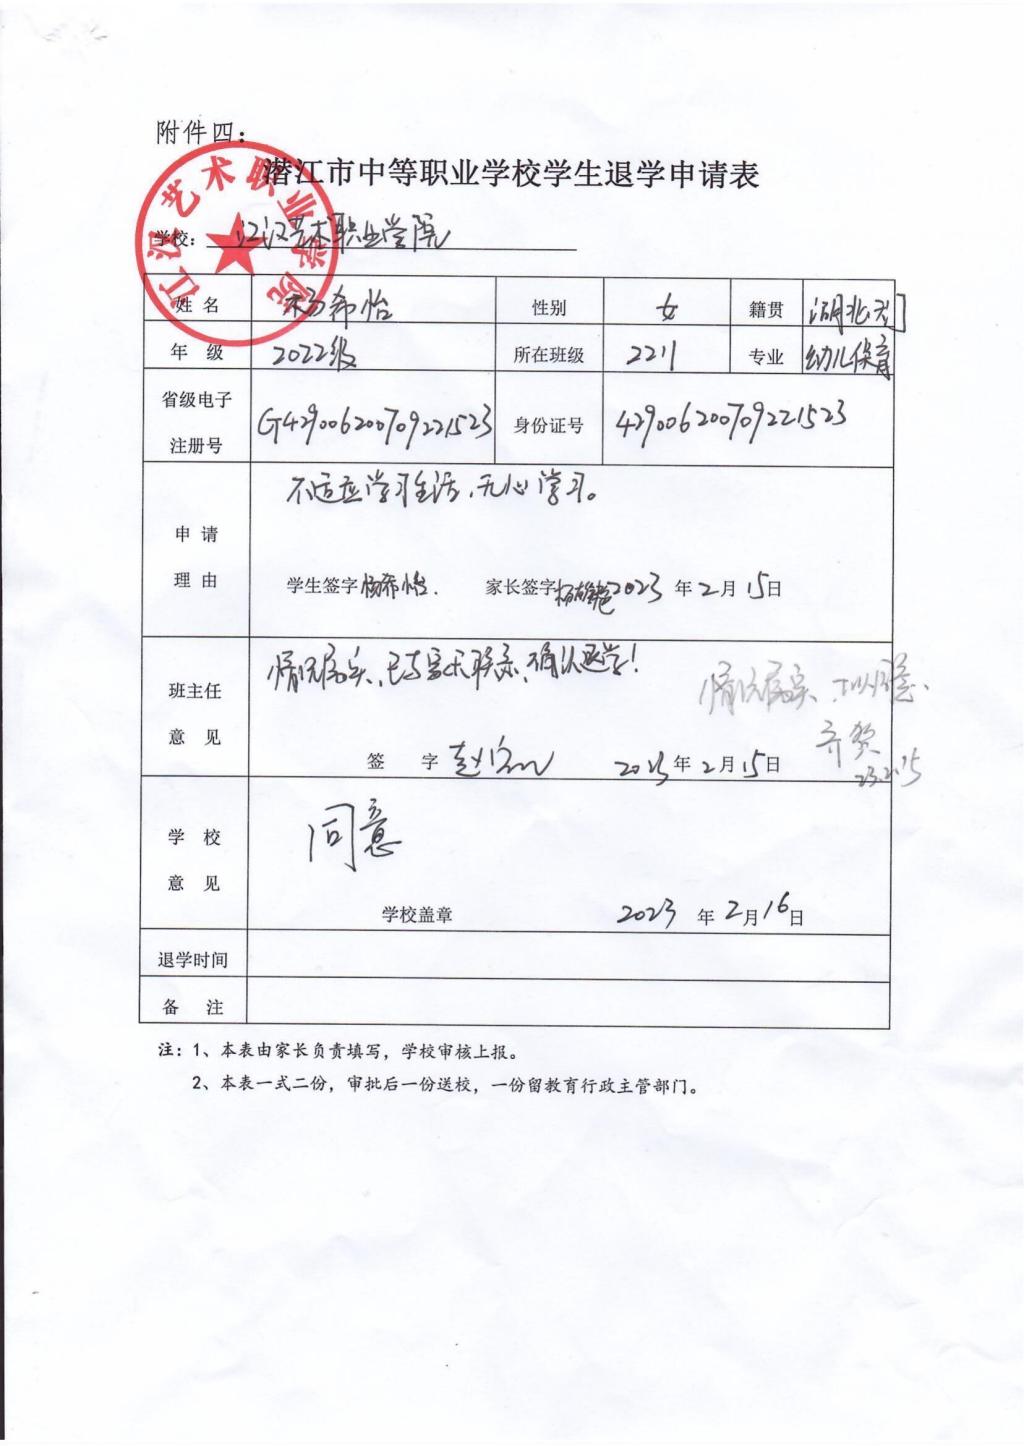 附件四：
潜江市中等职业学校学生退学申请表
江汉艺术职业学院
学校： 江汉艺术职业学院
姓 名 杨希怡 性别 女 籍贯 湖北天门
年 级 2022级 所在班级 2211 专业 幼儿保育
省级电子注册号 G429006200709221523 身份证号 429006200709221523
申请理由
不适应学习生活，无心学习。
学生签字 杨希怡. 家长签字 2023 年 2 月 15 日
班主任意见
情况属实，已与家长联系，确认退学！
情况属实，
签 字 2023 年 2 月 15 日
23.2.15
学校意见
同意
学校盖章 2023 年 2 月 16 日
退学时间
备 注
注：1、本表由家长负责填写，学校审核上报。
2、本表一式二份，审批后一份送校，一份留教育行政主管部门。